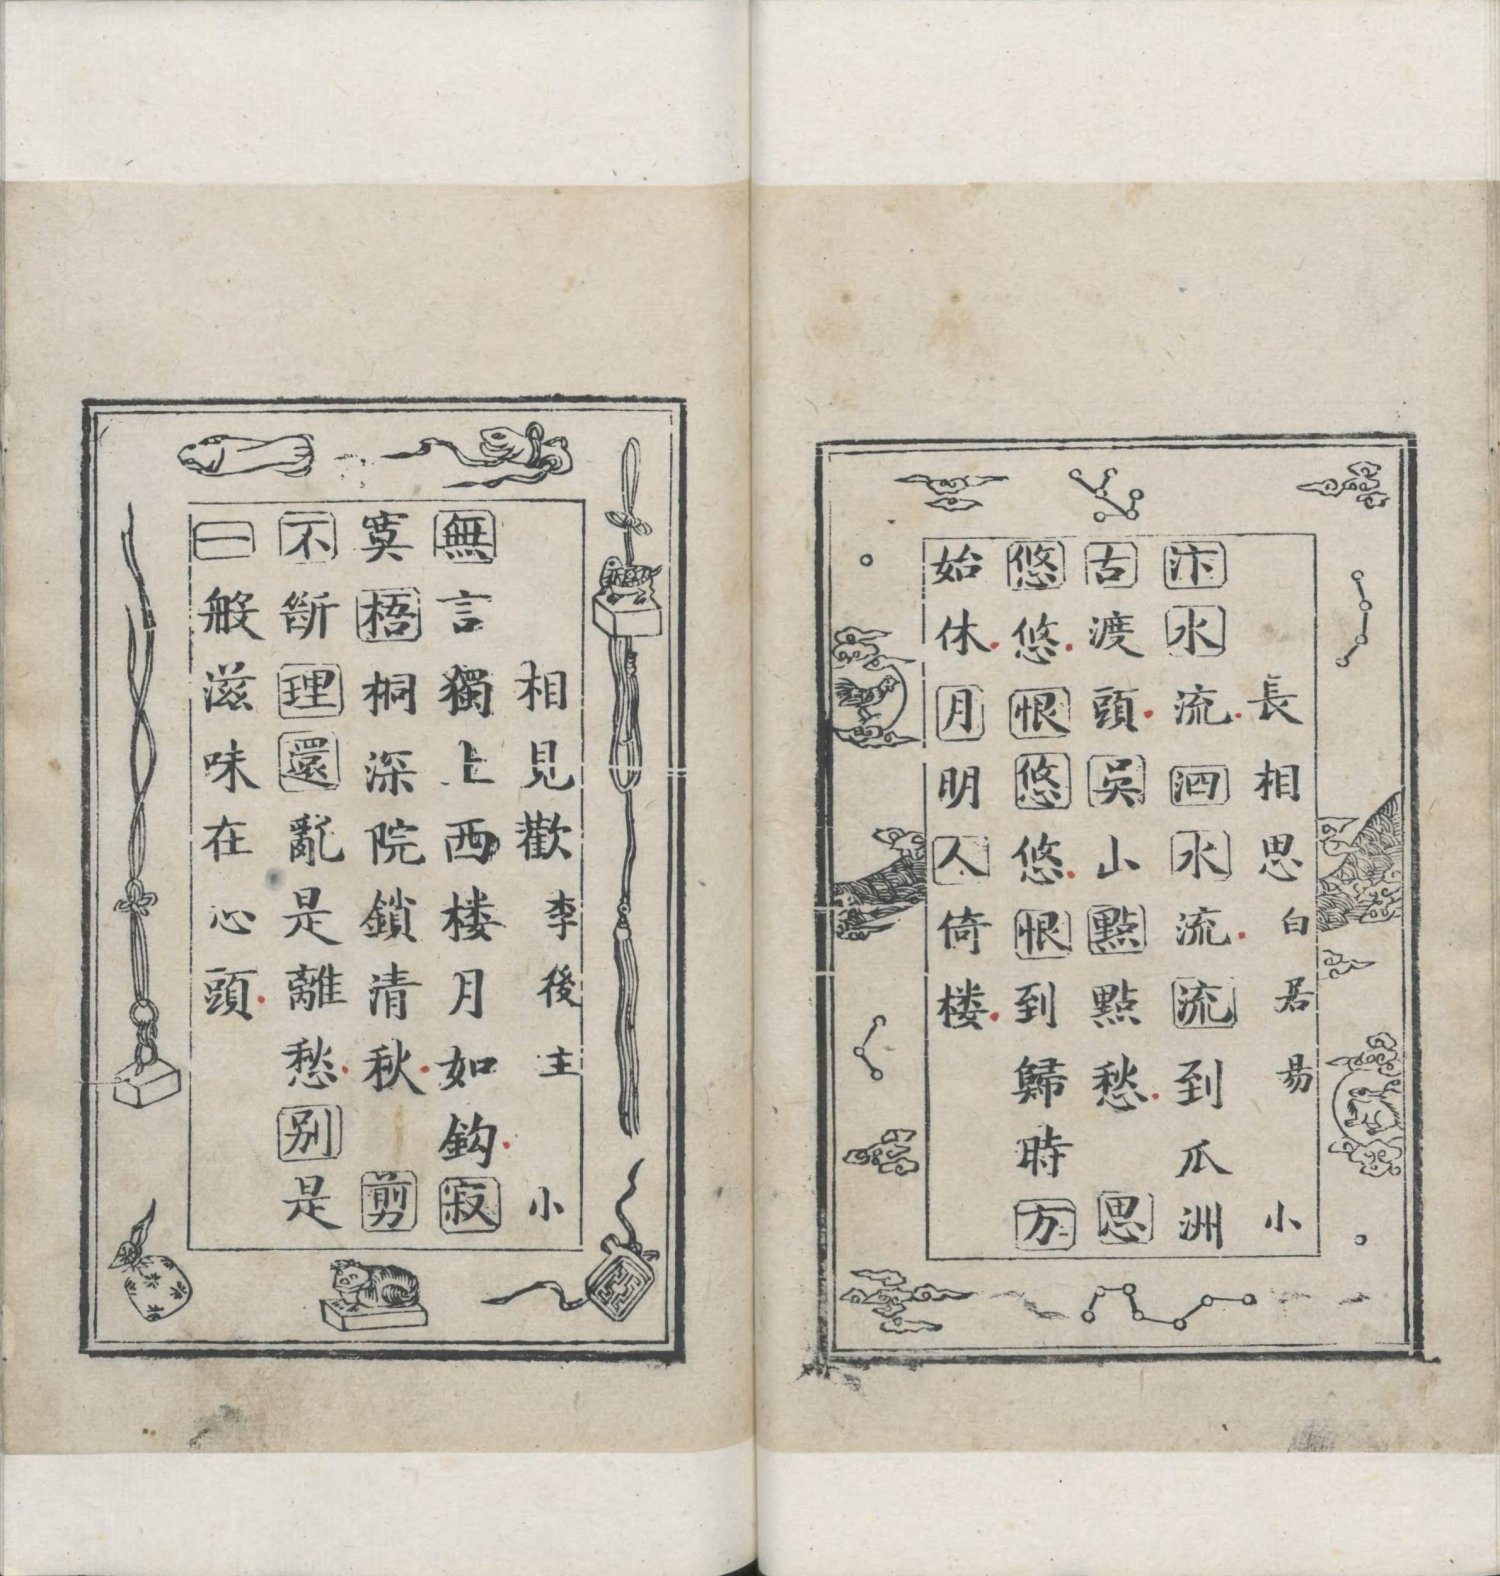 長相思 白居易 小
汴水流泗水流流到瓜洲
古渡頭吳山點點愁 思
悠悠恨悠悠恨到歸時方
始休月明人倚楼
相見歡 李後主 小
無言獨上西楼月如鈎寂
寞梧桐深院鎖清秋 剪
不斷理還亂是離愁别是
一般滋味在心頭